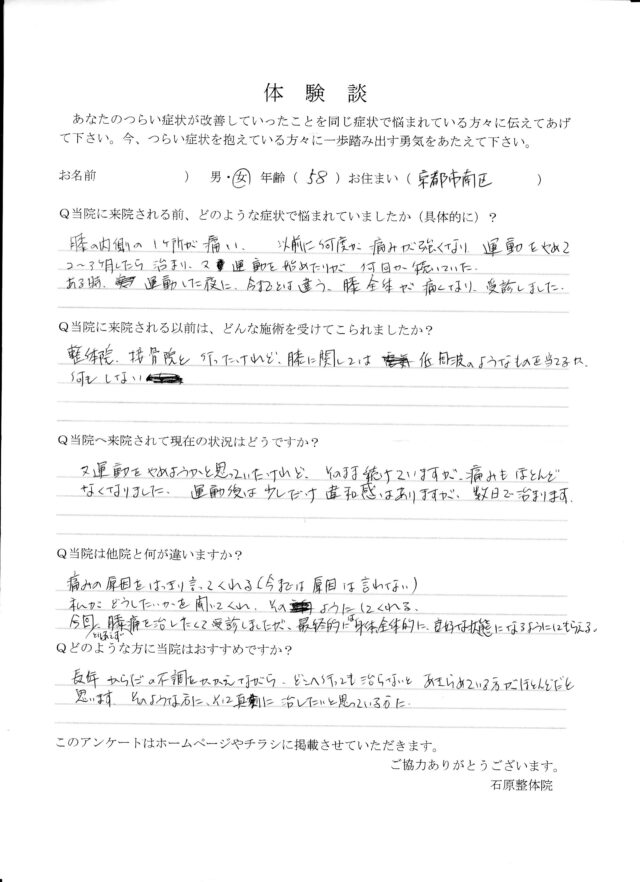 体験談
あなたのつらい症状が改善していったことを同じ症状で悩まれている方々に伝えてあげ
て下さい。今、つらい症状を抱えている方々に一歩踏み出す勇気をあたえて下さい。
お名前　　　　　）　男・女　年齢（ 58 ）お住まい（ 京都市南区　　）
Q当院に来院される前、どのような症状で悩まれていましたか（具体的に）？
膝の内側の1ヶ所が痛い、 以前に何度か 痛みが強くなり 運動をやめて
2〜3ヶ月したら 治まり、又 運動を始めたりが 何日か続いていた。
ある時、 運動した夜に、今までとは違う、膝全体が 痛くなり、受診しました。
Q当院に来院される以前は、どんな施術を受けてこられましたか？
整体院、接骨院と 行ったけれど、膝に関しては 低周波のようなものを当てるか、
何もしない
Q当院へ来院されて現在の状況はどうですか？
又運動をやめようかと思っていたけれど、そのまま続けていますが、痛みもほとんど
なくなりました。 運動後は少しだけ 違和感はありますが、数日で治まります。
Q当院は他院と何が違いますか？
痛みの原因をはっきり言ってくれる（今までは原因は言わない）
私が どうしたいかを聞いてくれ、そのようにしてくれる。
今回、膝痛を治したくて受診しましたが、最終的には身体全体的に、良好な状態になるようにしてもらえる。
Qどのような方に当院はおすすめですか？
長年 からだの不調をかかえながら、どこへ行っても治らないと あきらめている方がほとんどだと
思います。そのような方に、 治したいと思っている方に。
このアンケートはホームページやチラシに掲載させていただきます。
ご協力ありがとうございます。
石原整体院